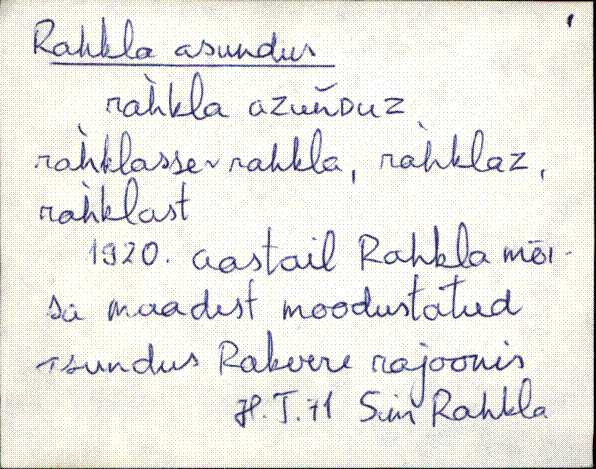 Rahkla asundus
rah̀kla azuǹᴅuz
rah̀klasse ~ rahkla, rah̀klaz,
rah̀klast
1920. aastail Rahkla mõi-
sa maadest moodustatud
asundus Rakvere rajoonis
H.T. 71 Sim Rahkla